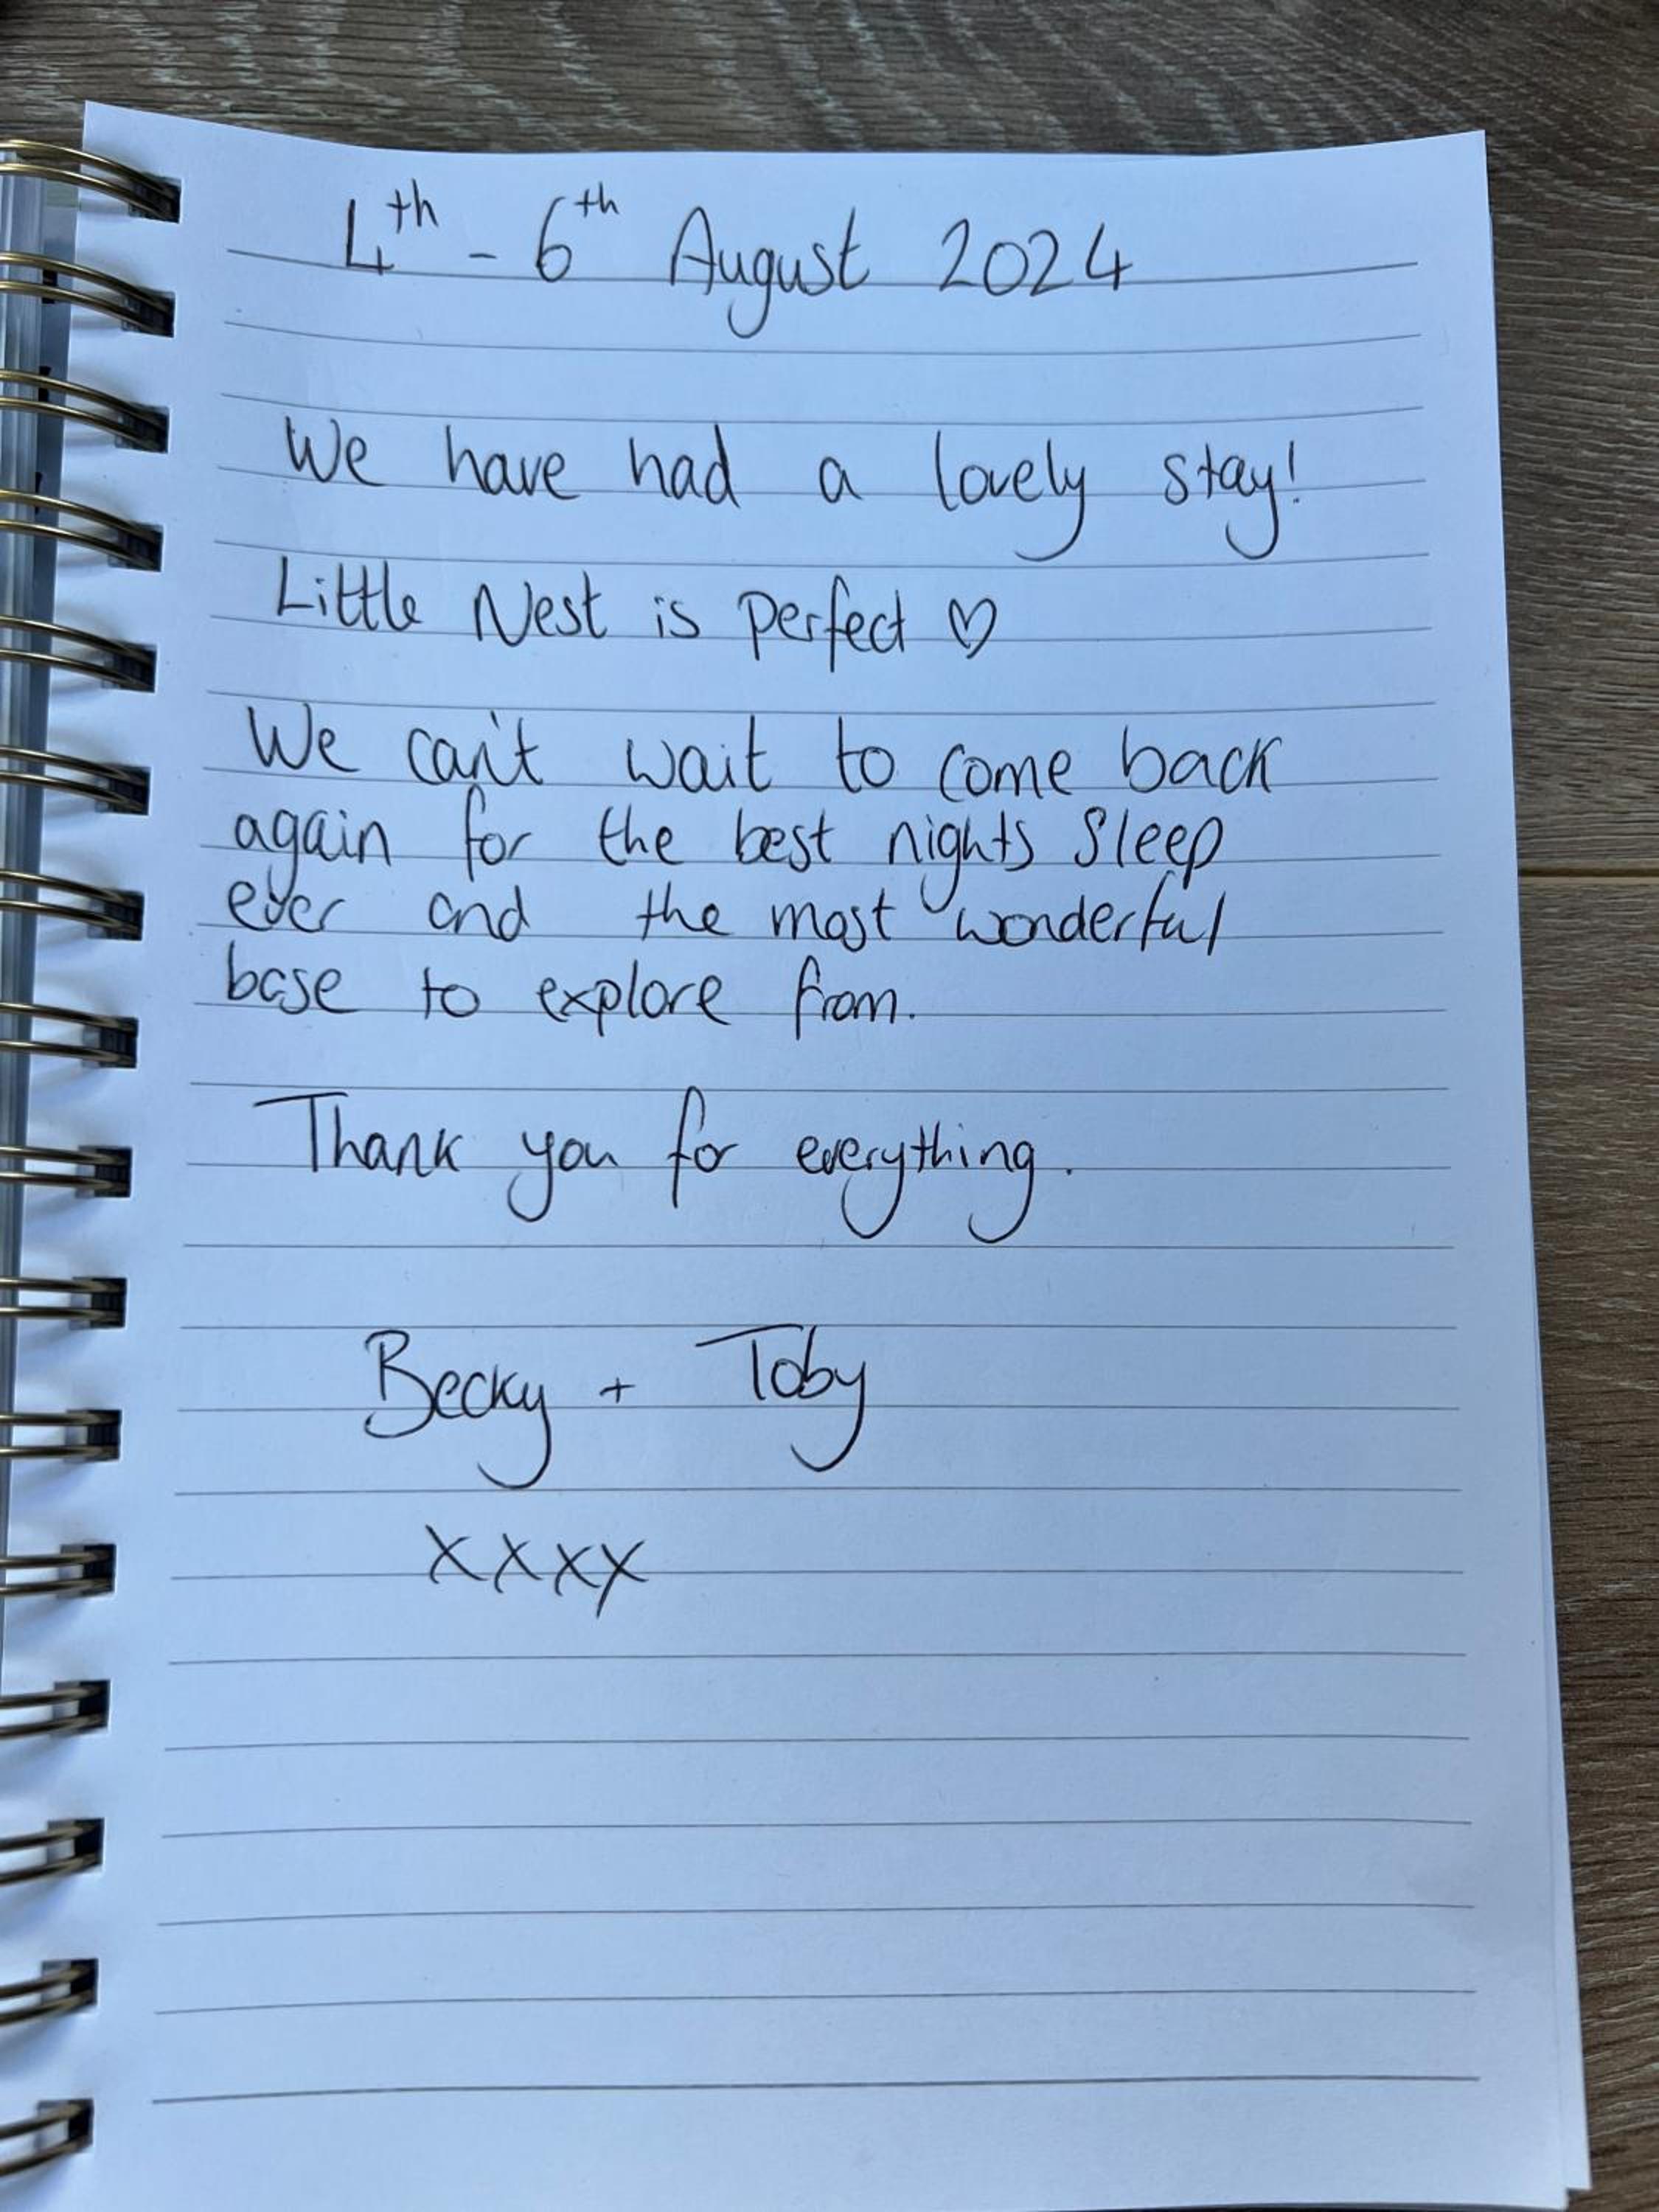 4th - 6th August 2024
We have had a lovely stay!
Little Nest is perfect ♡
We can't wait to come back
again for the best nights sleep
ever and the most wonderful
base to explore from.
Thank you for everything.
Becky + Toby
xxxx